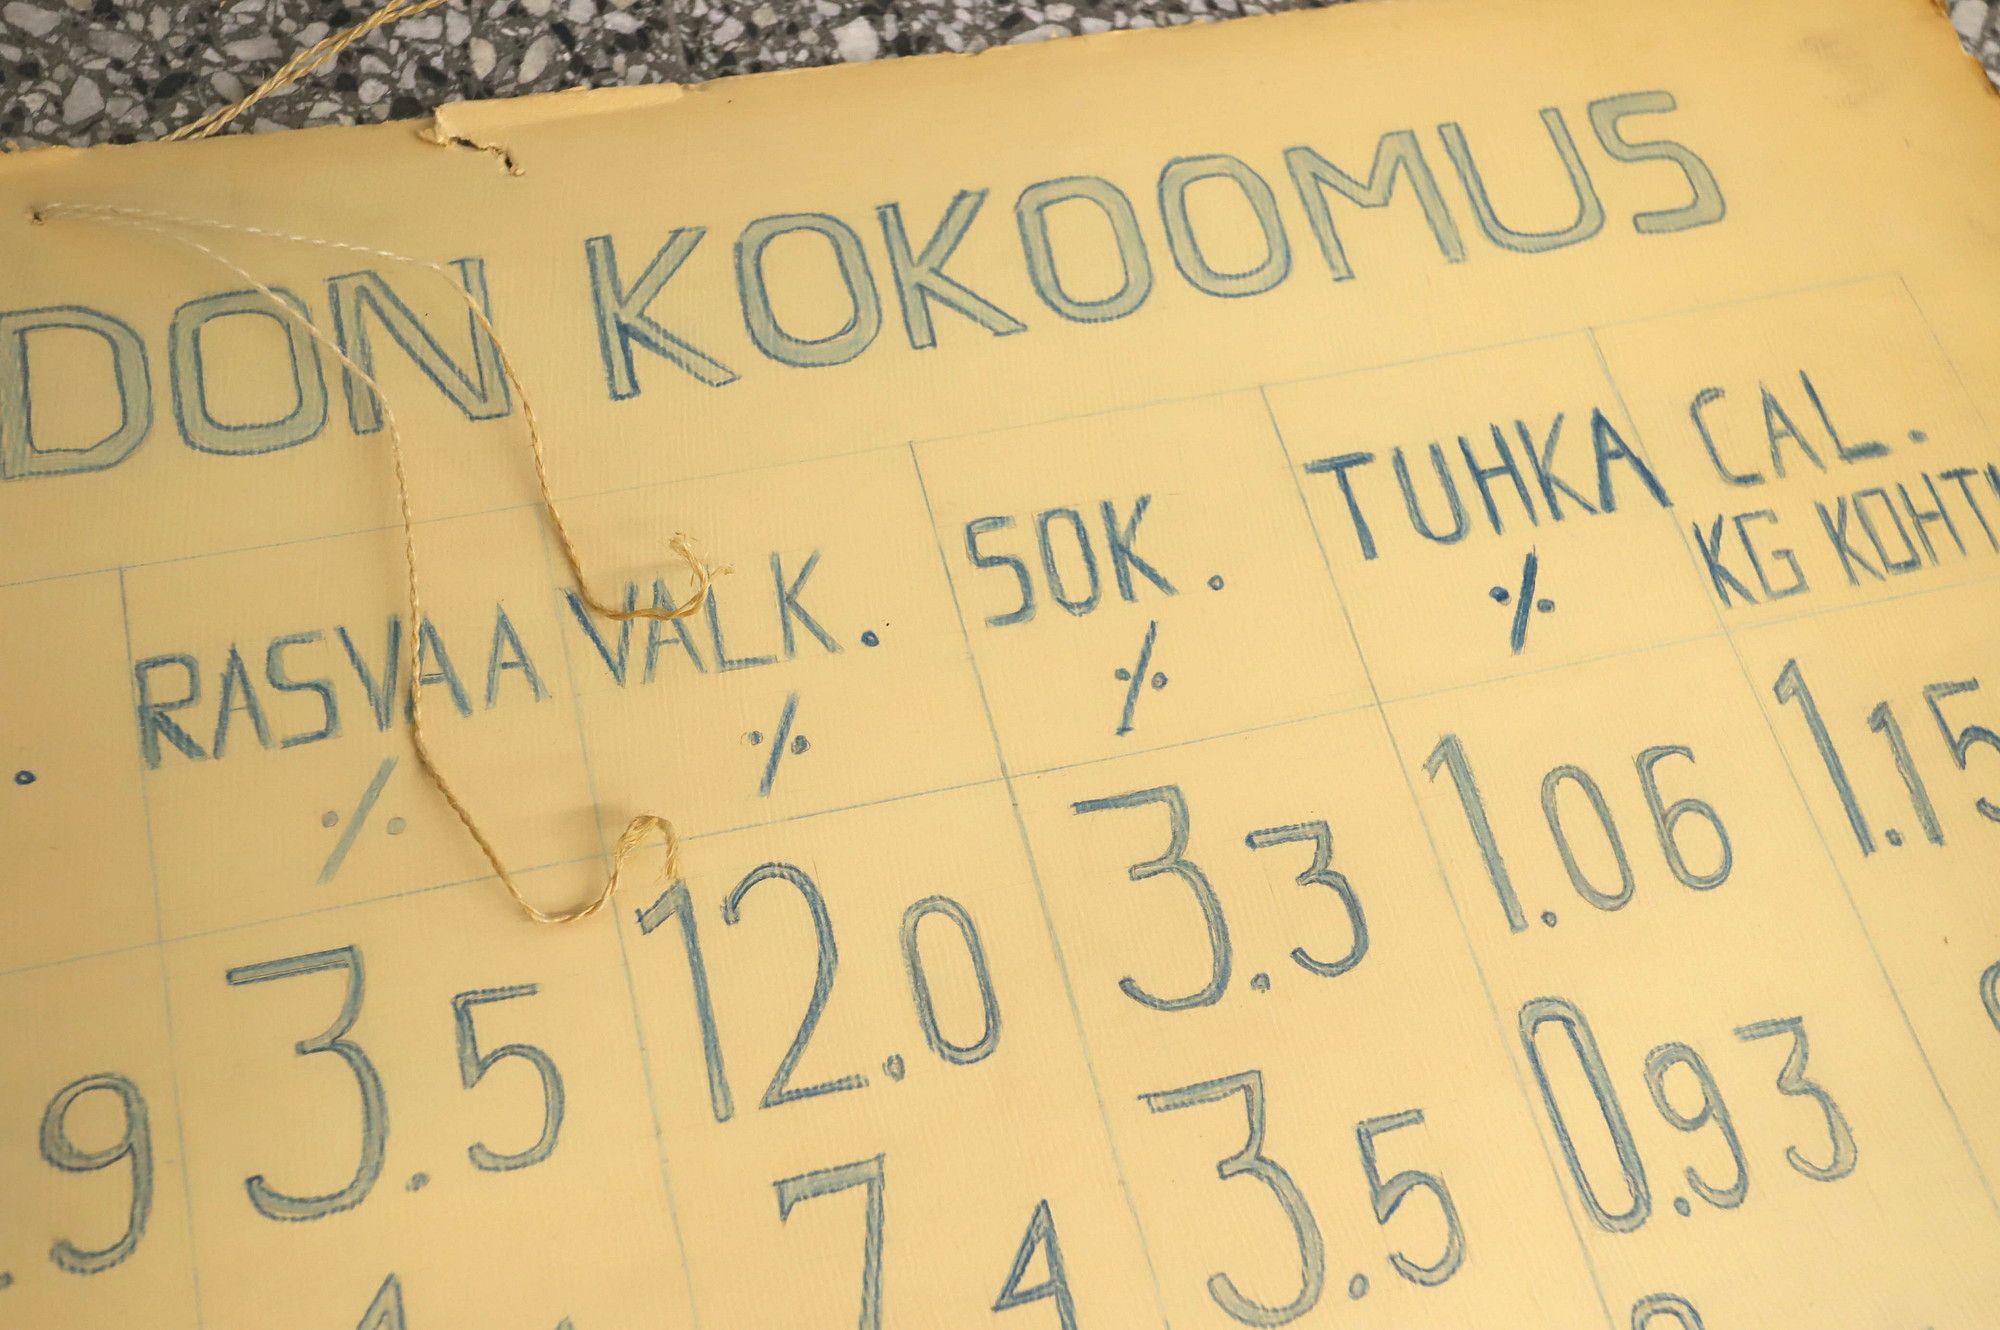 DON KOKOOMUS
RASVAA VALK. SOK. TUHKA CAL.
KG KOHTI
% % % %
.9 3.5 12.0 3.3 1.06 1.15
7.4 3.5 0.93